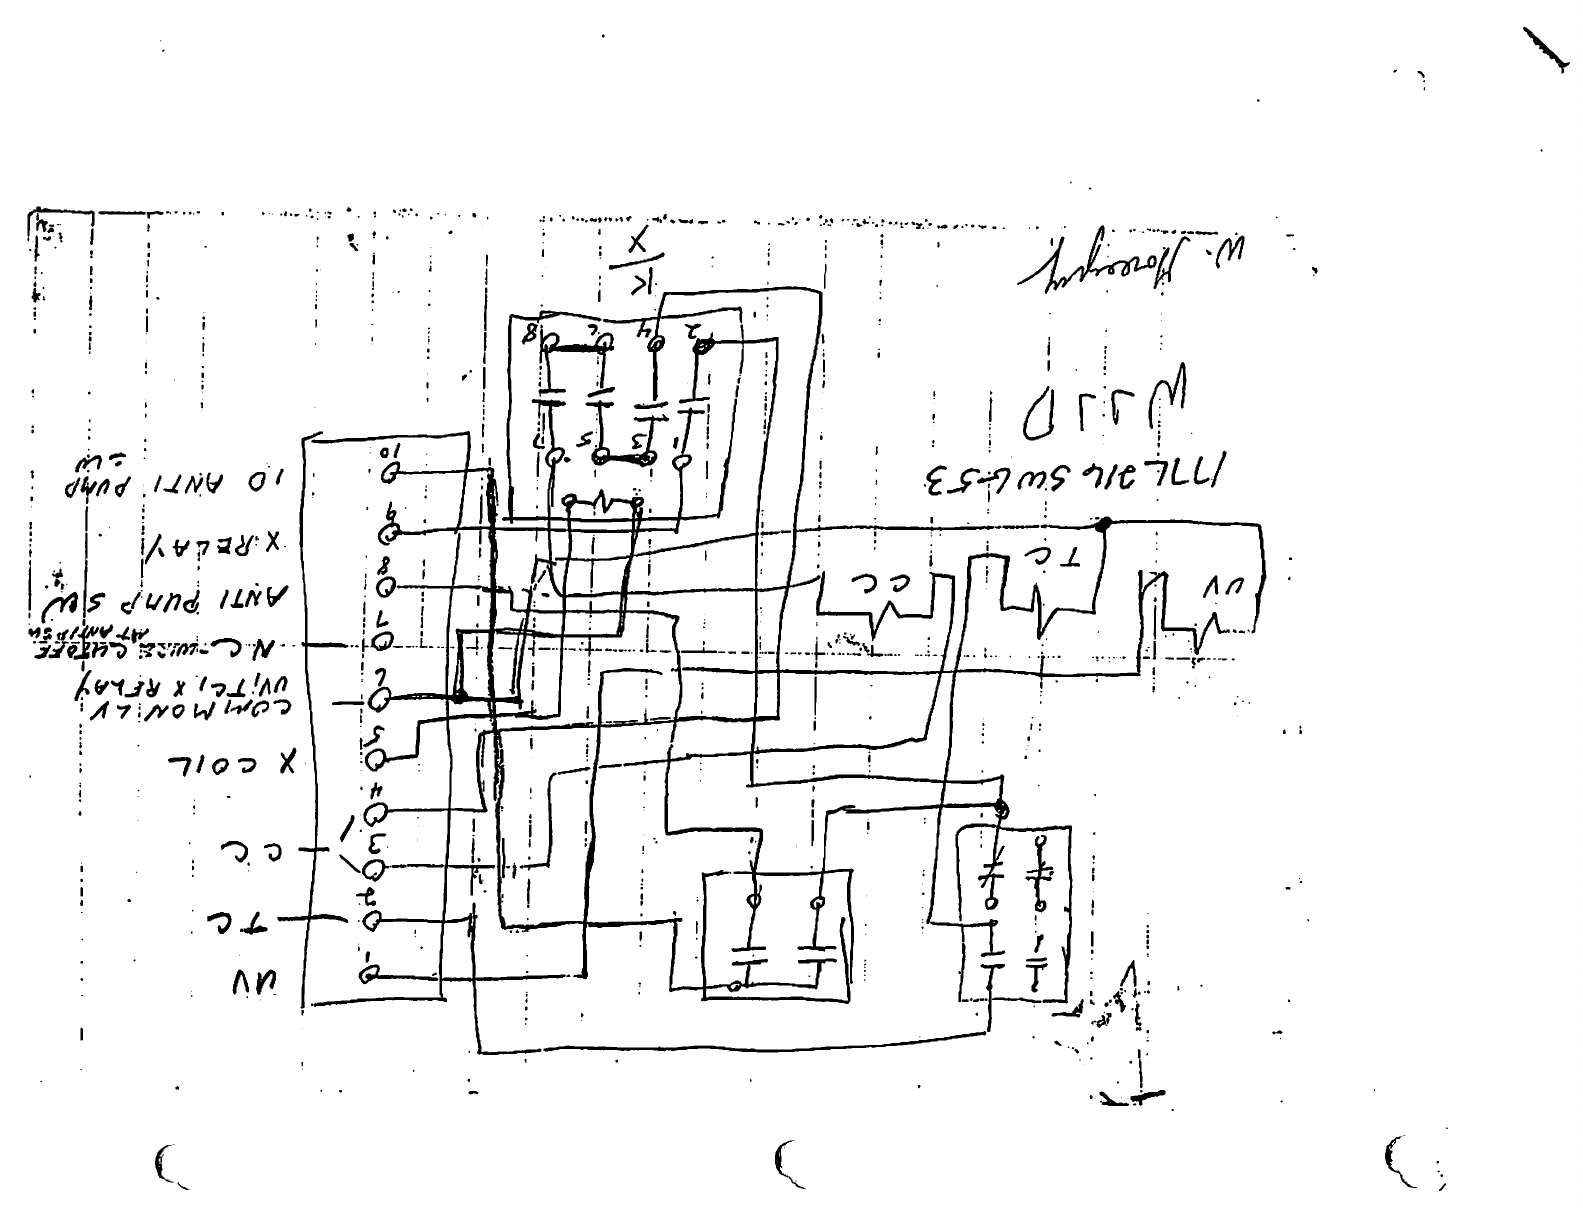 UV
1
TC
2
CC
3
4
X COIL
5
COMMON LV
UV, TC, X RELAY
6
N C - WIRE CUTOFF
AT ANTIPSW
7
ANTI PUMP SW
8
X RELAY
9
10 ANTI PUMP
SW
10
UV
TC
CC
177L 216
W.
1 3 5 7
2 4 6 8
K
X